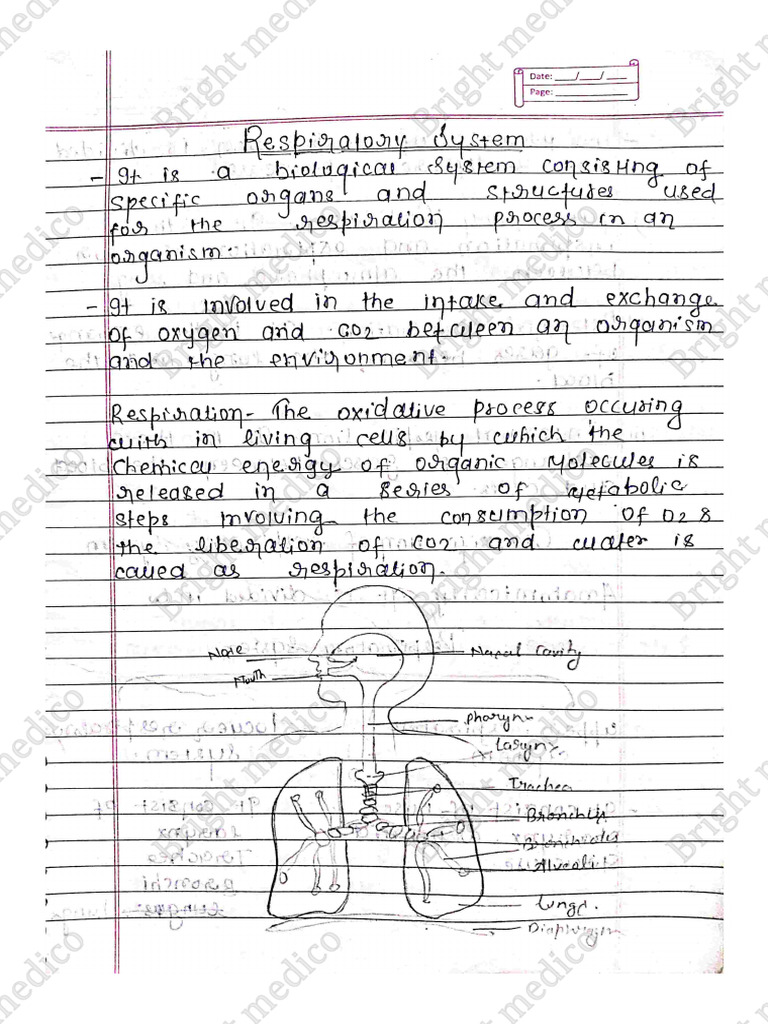 Date: ___/___/___
Page: ___________
Respiratory System
- It is a biological system consisting of
specific organs and structures used
for the respiration process in an
organism.
- It is involved in the intake and exchange
of oxygen and CO2 between an organism
and the environment.
Respiration - The oxidative process occuring
with in living cells by which the
Chemical energy of organic Molecules is
released in a series of metabolic
steps involving the consumption of O2 &
the liberation of CO2 and water is
called as respiration.
Nose
Nasal Cavity
Mouth
pharynx
Larynx
Trachea
Bronchi
Bronchioles
Alveoli
lungs.
Diaphragm
Bright medico